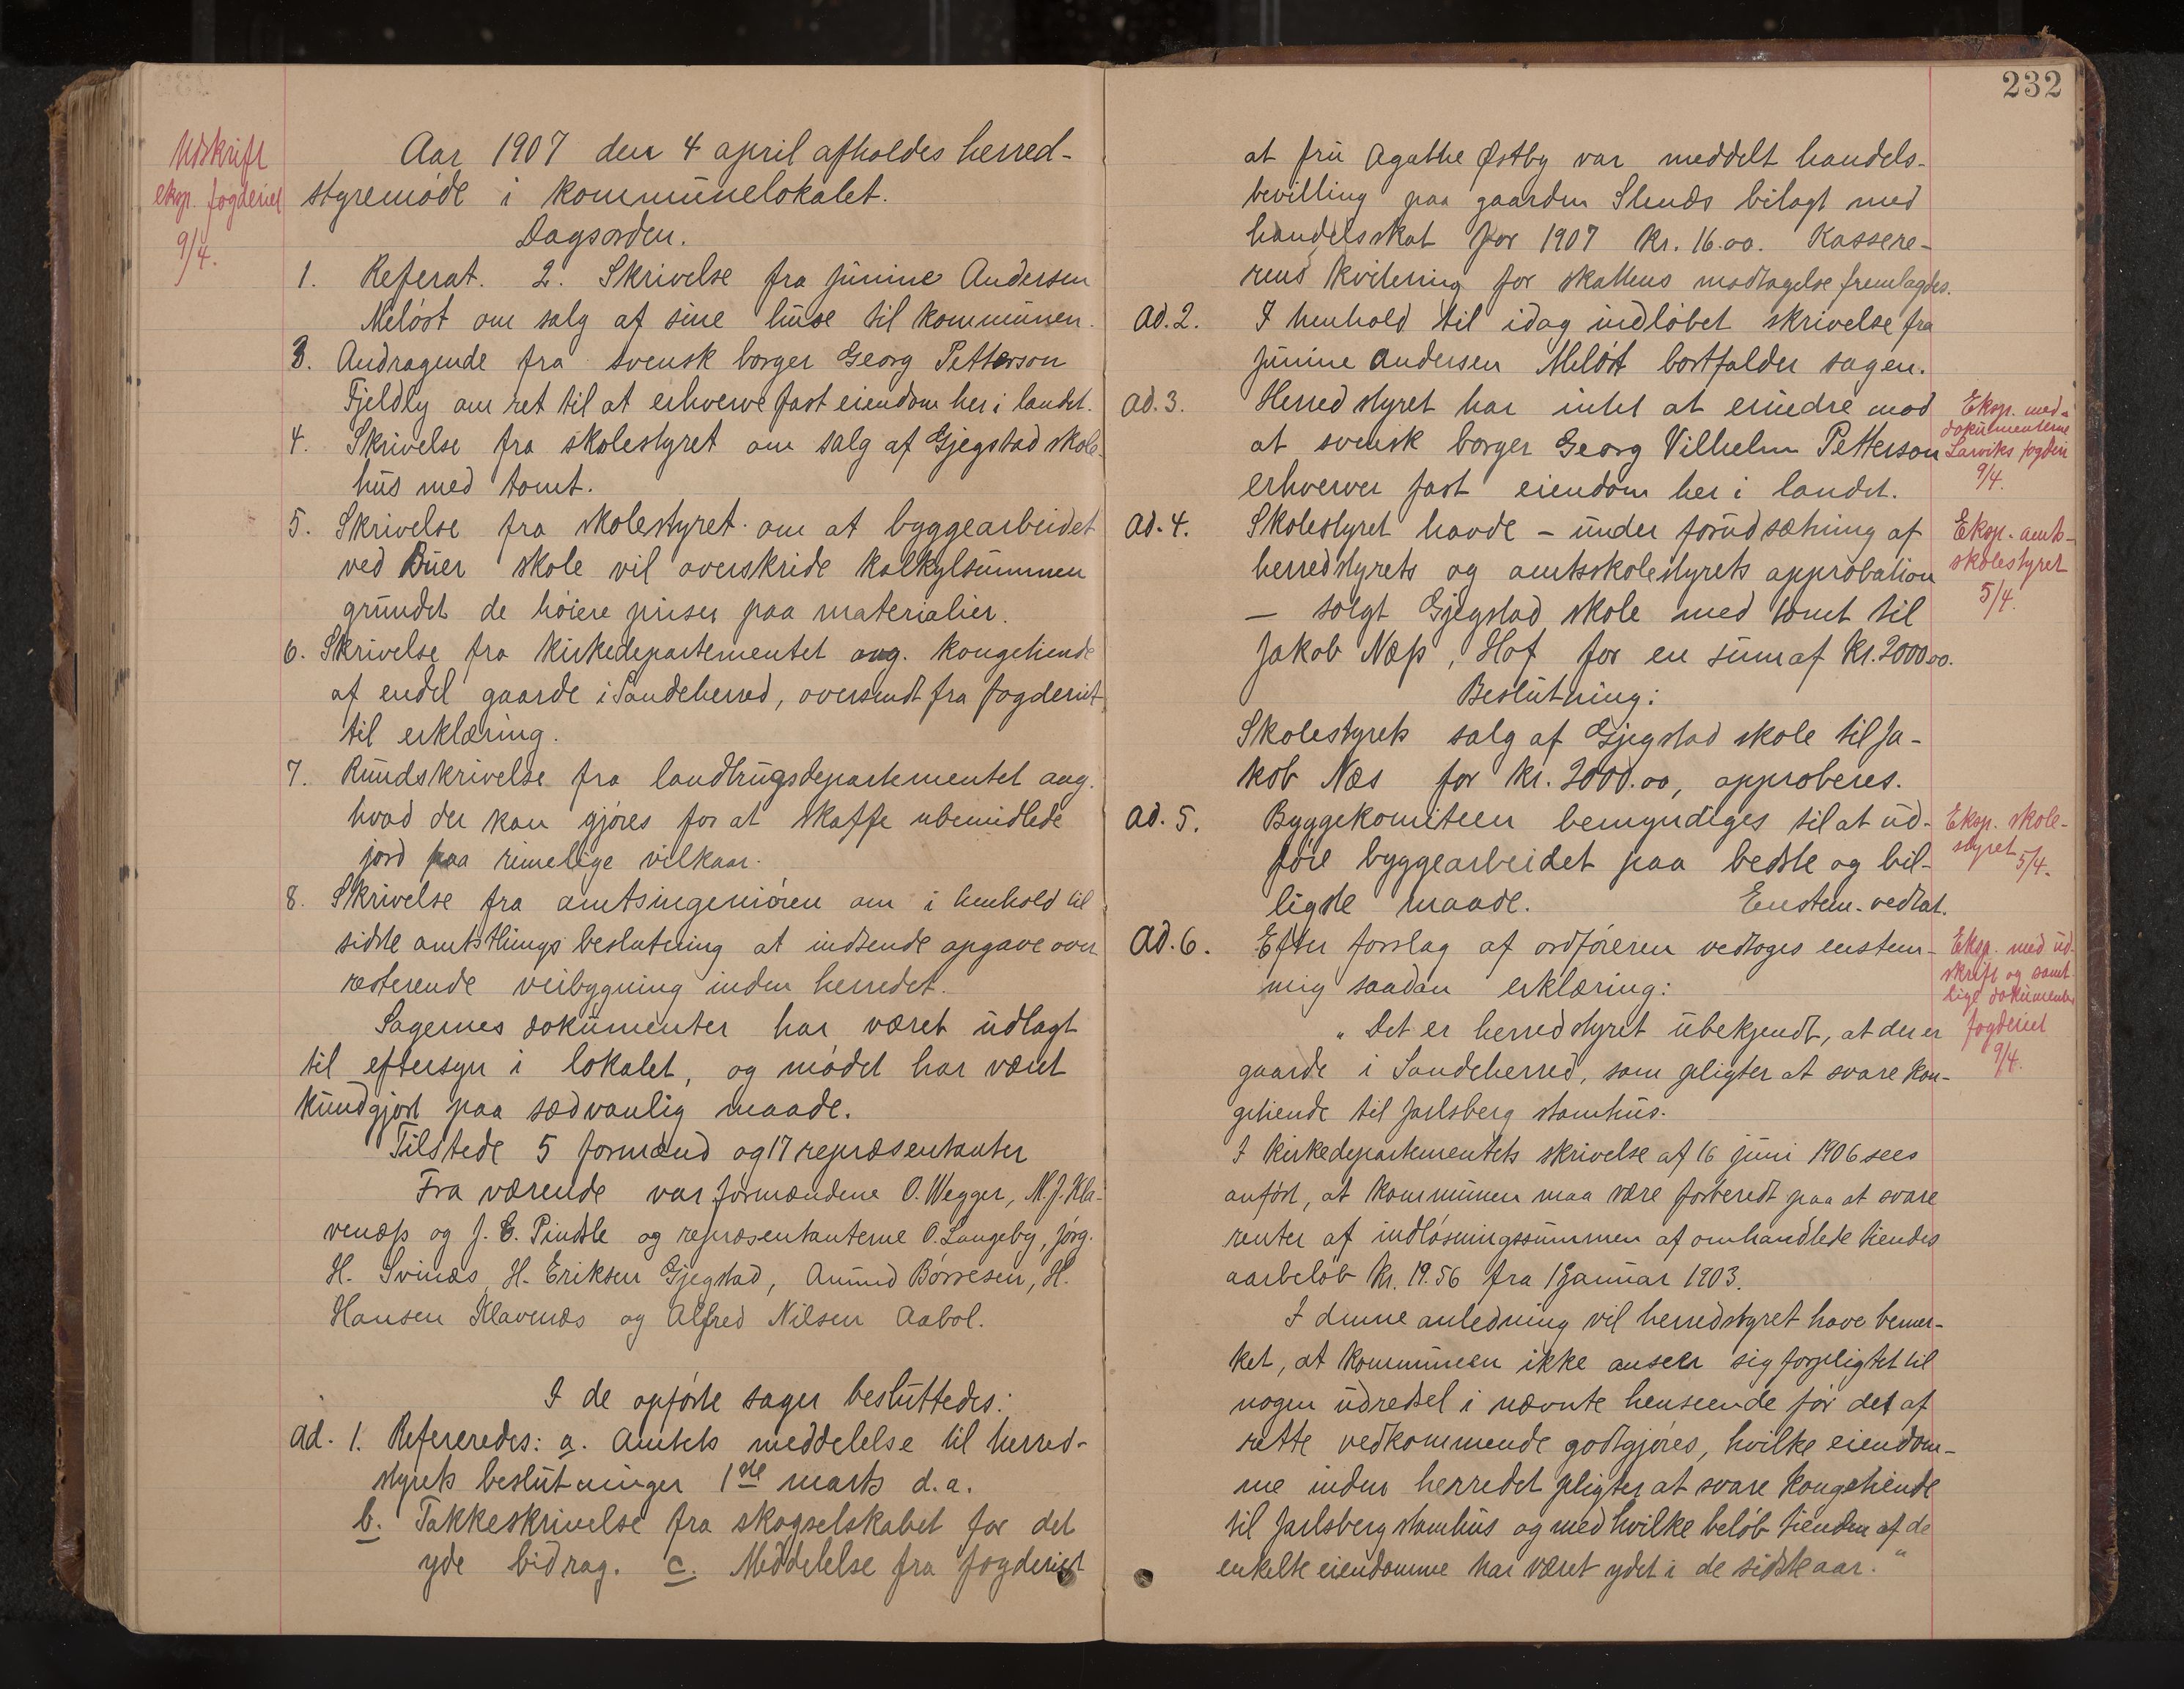 Udskrift
eksp. fogderiet
9/4.
Aar 1907 den 4 april afholdes herred-
styremöde i kommunelokalet.
Dagsorden.
1. Referat. 2. Skrivelse fra Junine Andersen
Melöst om salg af sine huse til kommunen.
3. Andragende fra svensk borger Georg Petterson
Fjeldly om ret til at erhverve fast eiendom her i landet.
4. Skrivelse fra skolestyret om salg af Gjegstad skole-
hus med tomt.
5. Skrivelse fra skolestyret om at byggearbeidet
ved Buer skole vil overskride kalkylsummen
grundet de höiere priser paa materialier.
6. Skrivelse fra kirkedepartementet ang. kongetiende
af endel gaarde i Sandeherred, oversendt fra fogderiet
til erklæring.
7. Rundskrivelse fra landbrugsdepartementet ang.
hvad der kan gjöres for at skaffe ubemidlede
jord paa rimelige vilkaar.
8. Skrivelse fra amtsingeniören om i henhold til
sidste amtsthings beslutning at indsende opgave over
resterende veibygning inden herredet.
Sagernes dokumenter har været udlagt
til eftersyn i lokalet, og mödet har været
kundgjort paa sædvanlig maade.
Tilstede 5 formænd og 17 repræsentanter
Fra værende var formændene O. Wegger, M. J. Kla-
venæss og J. E. Pindsle og repræsentanterne O. Langeby, Jörg.
H. Svinæs, H. Eriksen Gjegstad, Anund Börresen, H.
Hansen Klavenæs og Alfred Nilsen Aabol.
I de opförte sager besluttedes:
ad. 1. Refereredes: a. Amtets meddelelse til herred-
styrets beslutninger 1ste marts d.a.
b. Takkeskrivelse fra skogselskabet for det
yde bidrag. c. Meddelelse fra fogderiet
232
at fru Agathe Östby var meddelt handels-
bevilling paa gaarden Skends bilagt med
handelsskat for 1907 kr. 16.00. Kassere-
rens kvitering for skattens modtagelse fremlagdes.
ad. 2. I henhold til idag indlöbet skrivelse fra
Junine Andersen Melöst bortfalder sagen.
ad. 3. Herredstyret har intet at erindre mod
at svensk borger Georg Vilhelm Petterson
erhverver fast eiendom her i landet.
Eksp. med
dokumenterne
Larviks fogderi
9/4.
ad. 4. Skolestyret havde – under forudsætning af
herredstyrets og amtsskolestyrets approbation
– solgt Gjegstad skole med tomt til
Jakob Næss, Hof for en sum af kr. 2000.00.
Eksp. amts-
skolestyret
5/4.
Beslutning:
Skolestyrets salg af Gjegstad skole til Ja-
kob Næs for kr. 2000.00, approberes.
ad. 5. Byggekomiteen bemyndiges til at ud-
före byggearbeidet paa bedste og bil-
ligste maade. Enstem. vedtat.
Eksp. skole-
styret 5/4.
ad. 6. Efter forslag af ordföreren vedtoges enstem-
mig saadan erklæring:
Eksp. med ud-
skrift og samt-
lige dokumenter
fogderiet
9/4.
"Det er herredstyret ubekjendt, at der er
gaarde i Sandeherred, som pligter at svare kon-
getiende til Jarlsberg stamhus.
I kirkedepartementets skrivelse af 16 juni 1906 sees
anfört, at kommunen maa være forberedt paa at svare
renter af indlösningssummen af omhandlede tiendes
aarbelöb kr. 19.56 fra 1 januar 1903.
I denne anledning vil herredstyret have bemer-
ket, at kommunen ikke anseer sig forpligtet til
nogen udredsel i nævnte henseende för det af
rette vedkommende godtgjöres, hvilke eiendom-
me inden herredet pligter at svare kongetiende
til Jarlsberg stamhus og med hvilke belöb tienden af de
enkelte eiendomme har været ydet i de sidste aar."